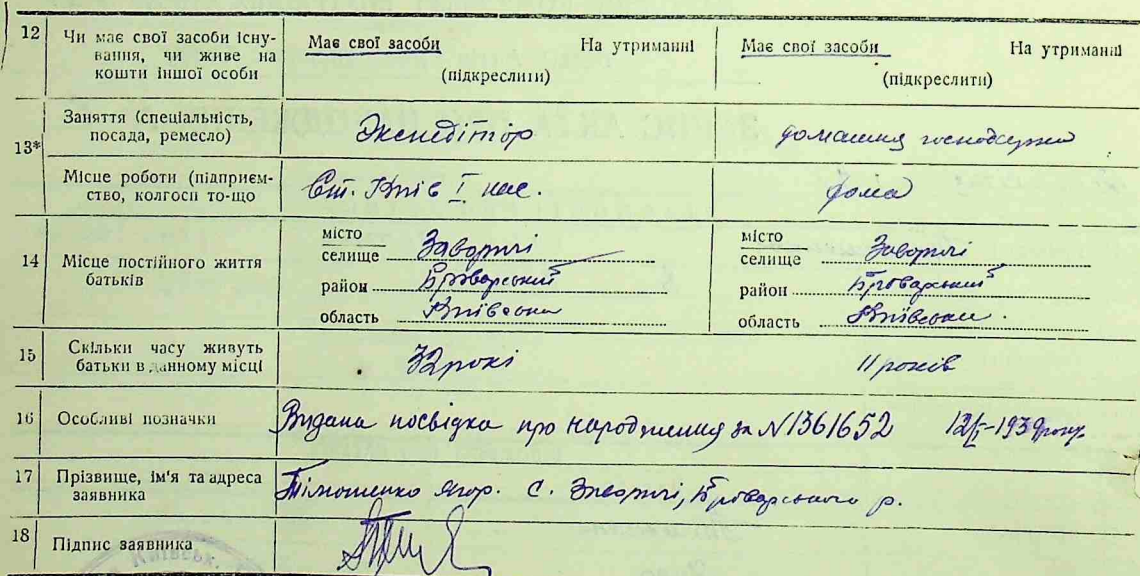 12 Чи має свої засоби існування, чи живе на кошти іншої особи
Має свої засоби На утриманні (підкреслити)
Має свої засоби На утриманні (підкреслити)
13* Заняття (спеціальність, посада, ремесло)
Экспедітор
домашня господарка
Місце роботи (підприємство, колгосп то-що
Ст. Київ I пас.
дома
14 Місце постійного життя батьків
місто
селище Заворичі
район Броварський
область Київська
місто
селище Заворичі
район Броварський
область Київська
15 Скільки часу живуть батьки в данному місці
32 рокі
11 років
16 Особливі позначки
Видана посвідка про народження за N1361652 12/I-1939 року
17 Прізвище, ім'я та адреса заявника
Тімошенко Ягор. С. Заворичі, Броварського р.
18 Підпис заявника